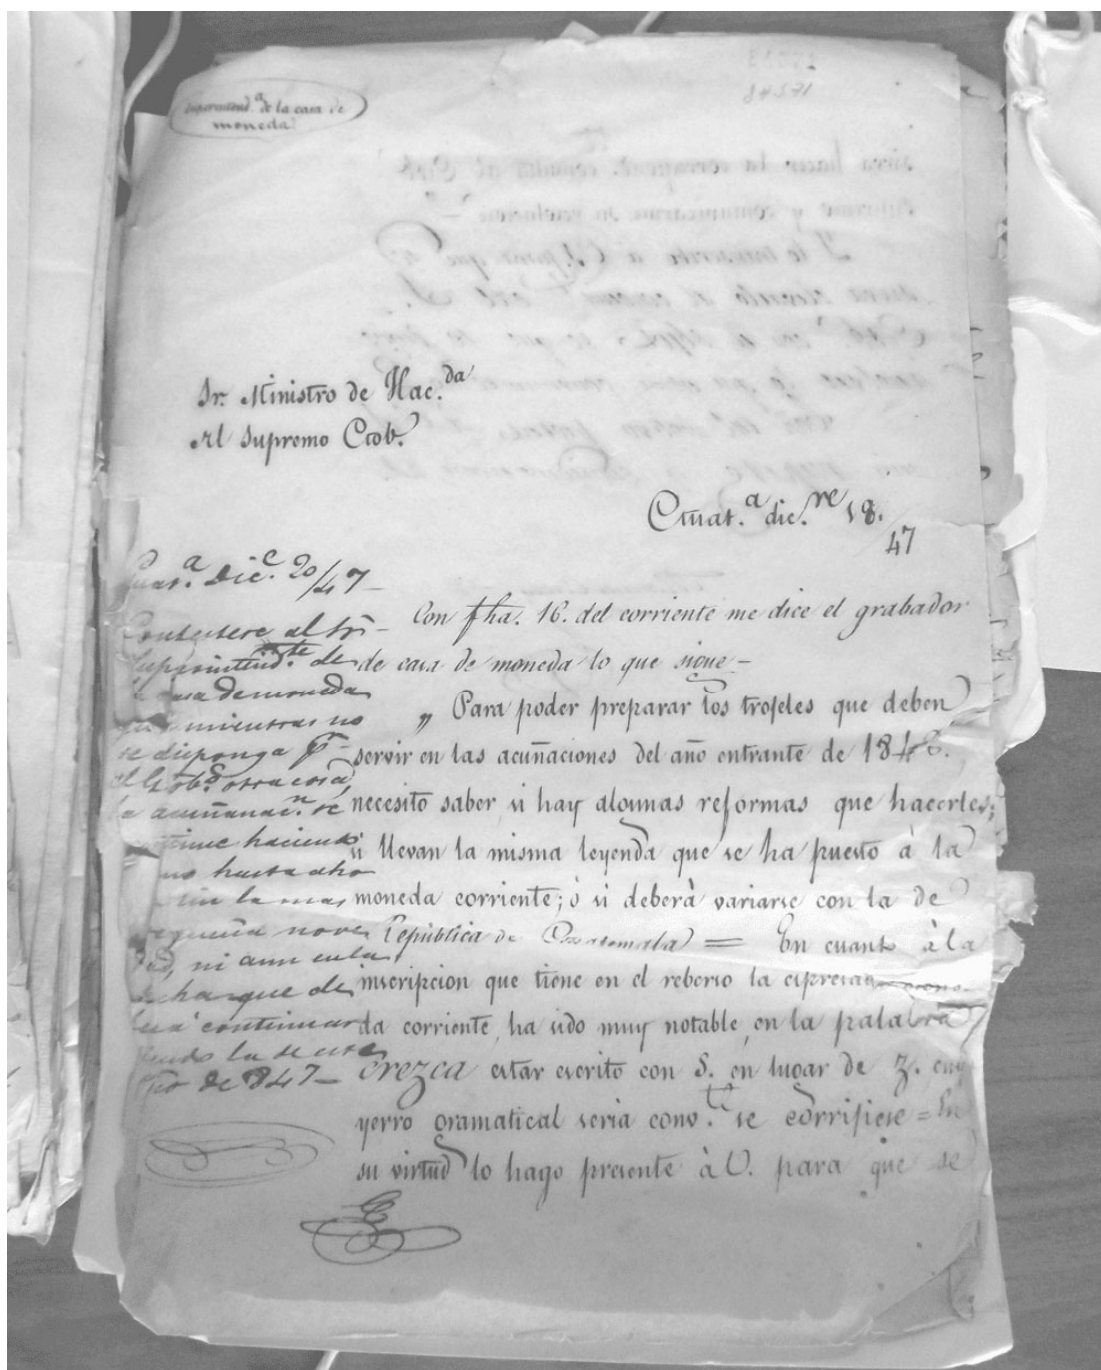 Superintend.ª de la casa de
moneda
Sr. Ministro de Hac.da
Al Supremo Gob.
Guat.a dic.re 18.
47
Guat.a Dic.e 20/47-
Contestese al Sr-
Superintend.te de
la casa de moneda
que mientras no
se disponga pr-
el Gob.o otra cosa,
la acuñanac.n se
continue haciendo
hasta aho
sin la mas
pequeña nove
dad, ni aun en la
fecha que de
berá continuar
siendo la de este
año de 847-
Con fha. 16. del corriente me dice el grabador
de casa de moneda lo que sigue-
„ Para poder preparar los troqueles que deben
servir en las acuñaciones del año entrante de 1848.
necesito saber si hay algunas reformas que hacerles;
si llevan la misma leyenda que se ha puesto à la
moneda corriente; ò si deberà variarse con la de
República de Guatemala = En cuanto à la
inscripcion que tiene en el reberso la espresada
da corriente, ha sido muy notable, en la palabra
crezca estar escrito con S. en lugar de z. cuy
yerro gramatical seria conv.te se corrifiese = En
su virtud lo hago presente à U. para que se